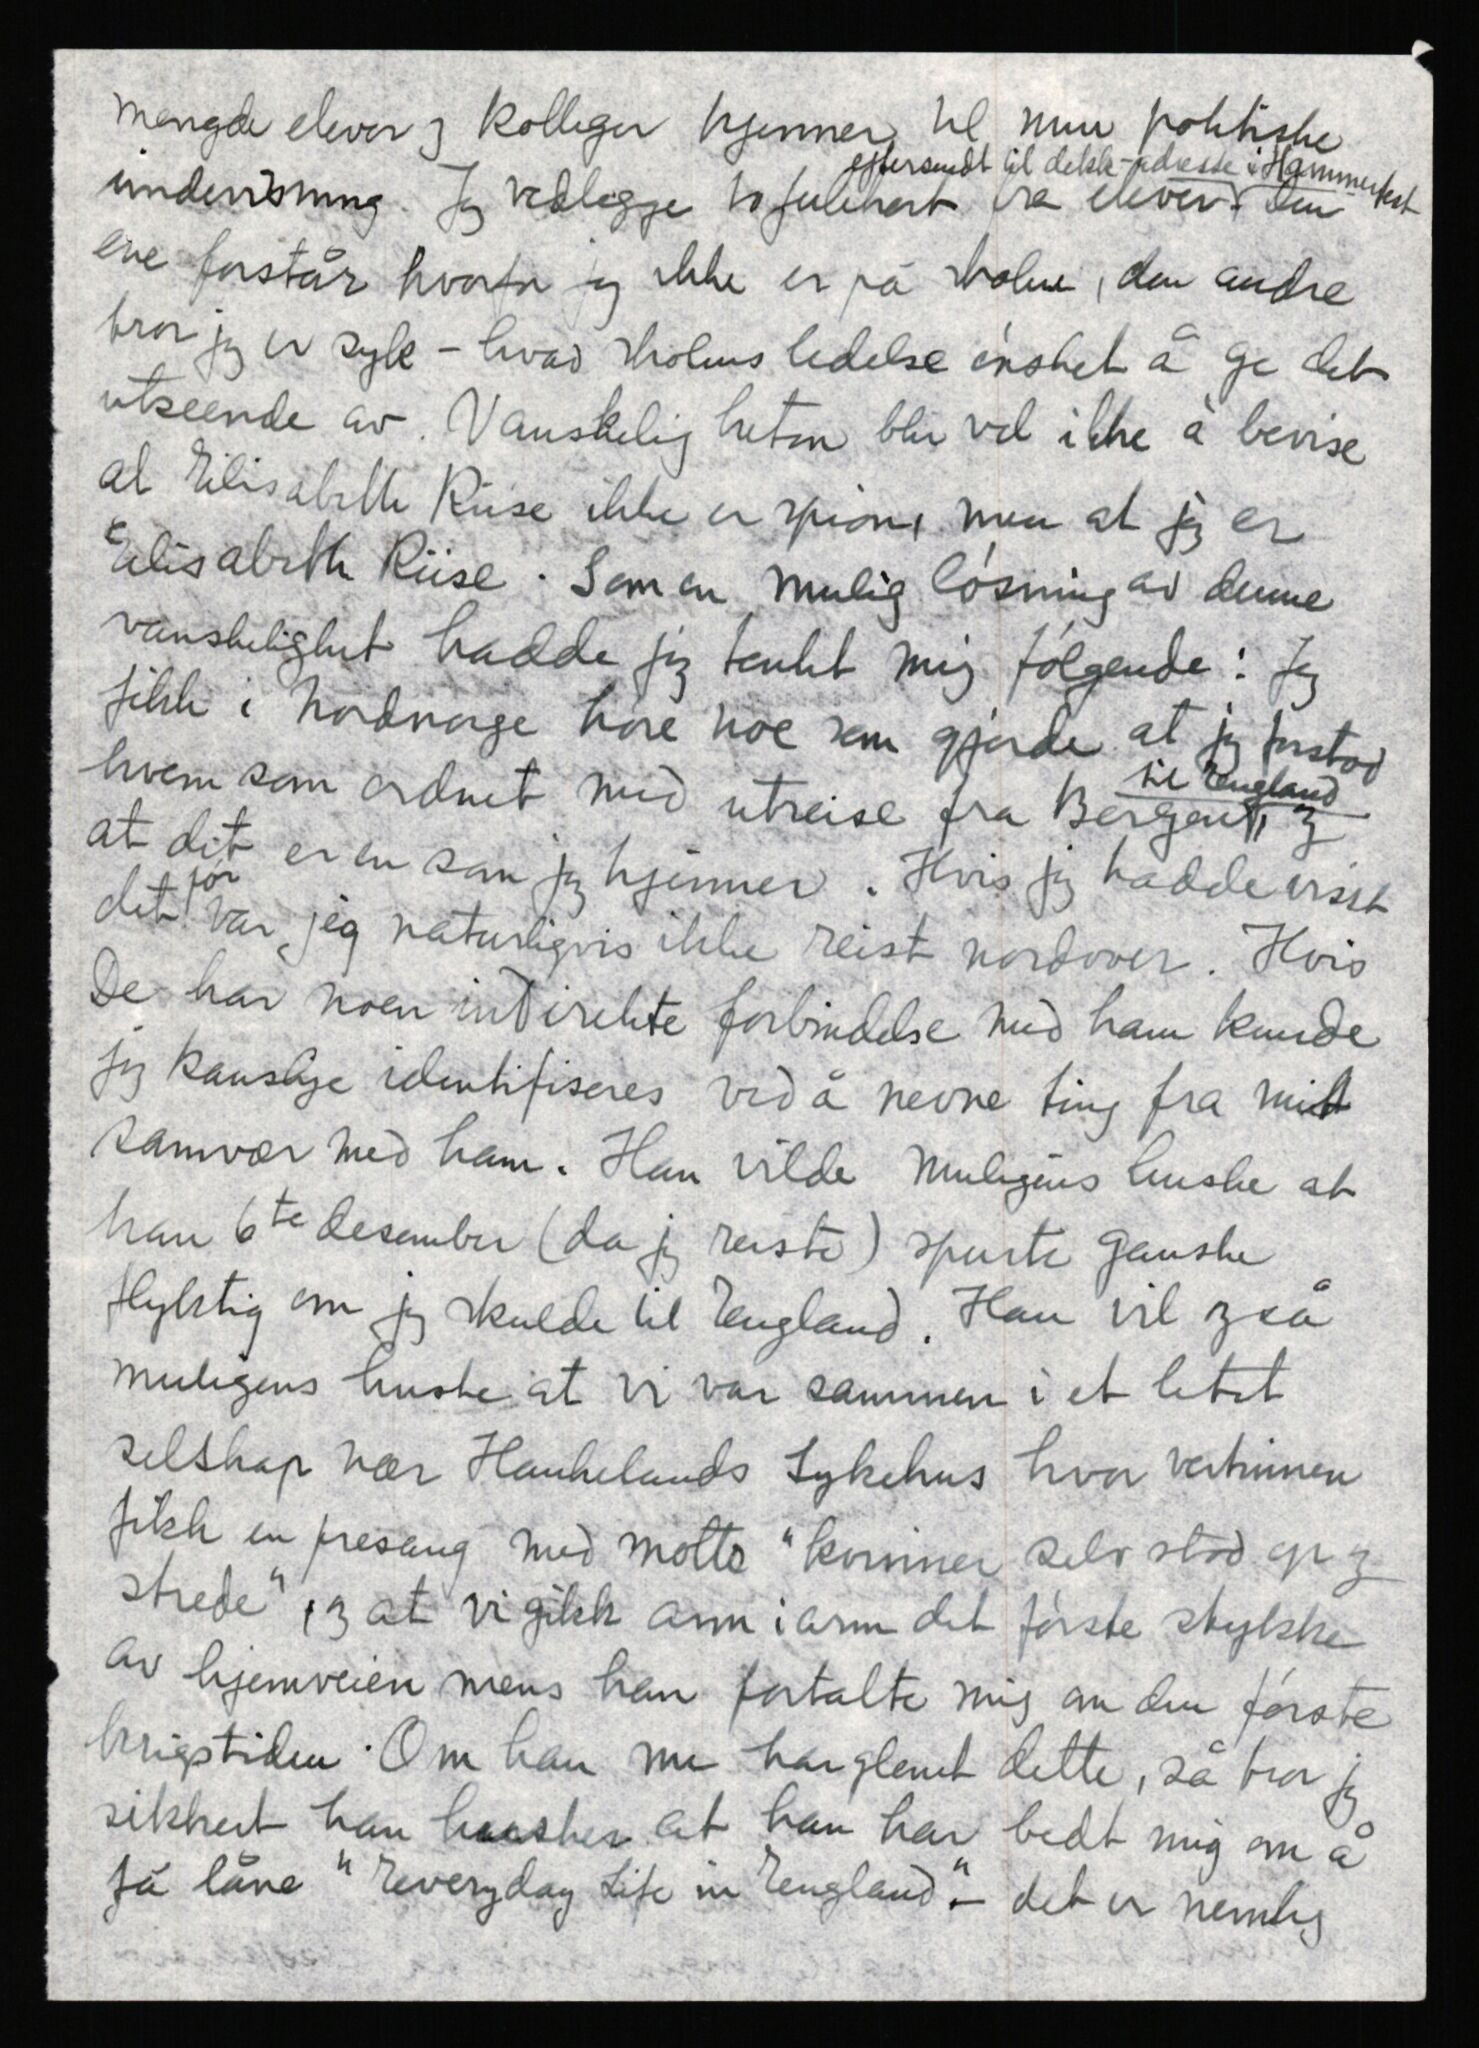 mengde elever og kolleger kjenner til min politiske
eftersendt til dekk-adresse i Hammerfest
undervisning. Jeg vedlegger to julekort fra elever. Den
ene forstår hvorfor jeg ikke er på skolen, den andre
tror jeg er syk - hvad skolens ledelse ønsket å ge det
utseende av. Vanskeligheten blir vel ikke å bevise
at Elisabeth Riise ikke er spion, men at jeg er
Elisabeth Riise. Som en mulig løsning av denne
vanskelighet hadde jeg tenkt mig følgende: Jeg
fikk i Nordnorge høre noe som gjorde at jeg forstod
til England
hvem som ordnet med utreise fra Bergen, og
at det er en som jeg kjenner. Hvis jeg hadde visst
før
det var jeg naturligvis ikke reist nordover. Hvis
De har noen indirekte forbindelse med ham kunde
jeg kanskje identifiseres ved å nevne ting fra mitt
samvær med ham. Han vilde muligens huske at
han 6te desember (da jeg reiste) spurte ganske
flyktig om jeg skulde til England. Han vil også
muligens huske at vi var sammen i et litet
selskap nær Haukelands Sykehus hvor vertinnen
fikk en presang med motto "kvinner selv stod op og
strede", og at vi gikk arm i arm det første stykke
av hjemveien mens han fortalte mig om den første
krigstiden. Om han nu har glemt dette, så tror jeg
sikkert han husker at han har bedt mig om å
få låne "Everyday Life in England" - det er nemlig